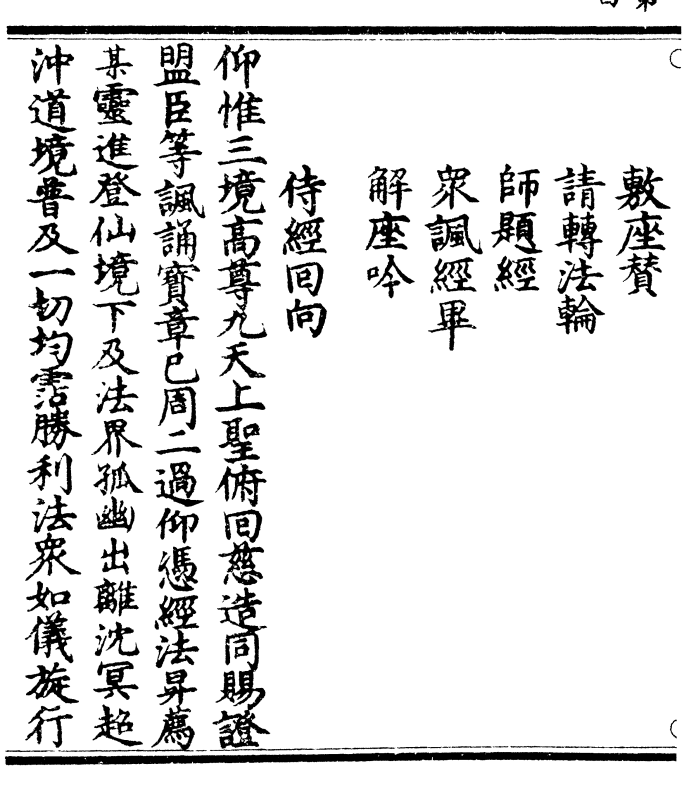 敷座贊
請轉法輪
師題經
眾諷經畢
解座吟
侍經回向
仰惟三境高尊九天上聖俯回慈造同賜證
盟臣等諷誦寶章已周二過仰憑經法昇薦
某靈進登仙境下及法界孤幽出離沈冥超
沖道境普及一切均霑勝利法眾如儀旋行